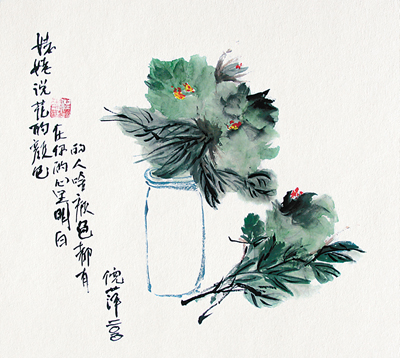 姥姥说花的颜色
在你的心里明白
的人啥颜色都有
倪萍